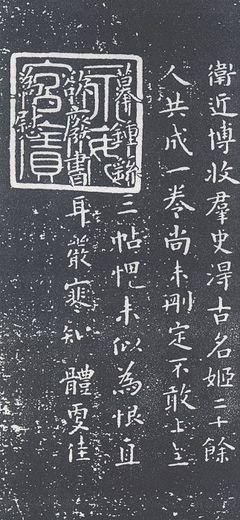 衛近博收羣史得古名姬二十餘
人共成一卷尚未刪定不敢上呈
摹鍾繇三帖未似為恨且
廢書耳嚴寒知體更佳
為慰